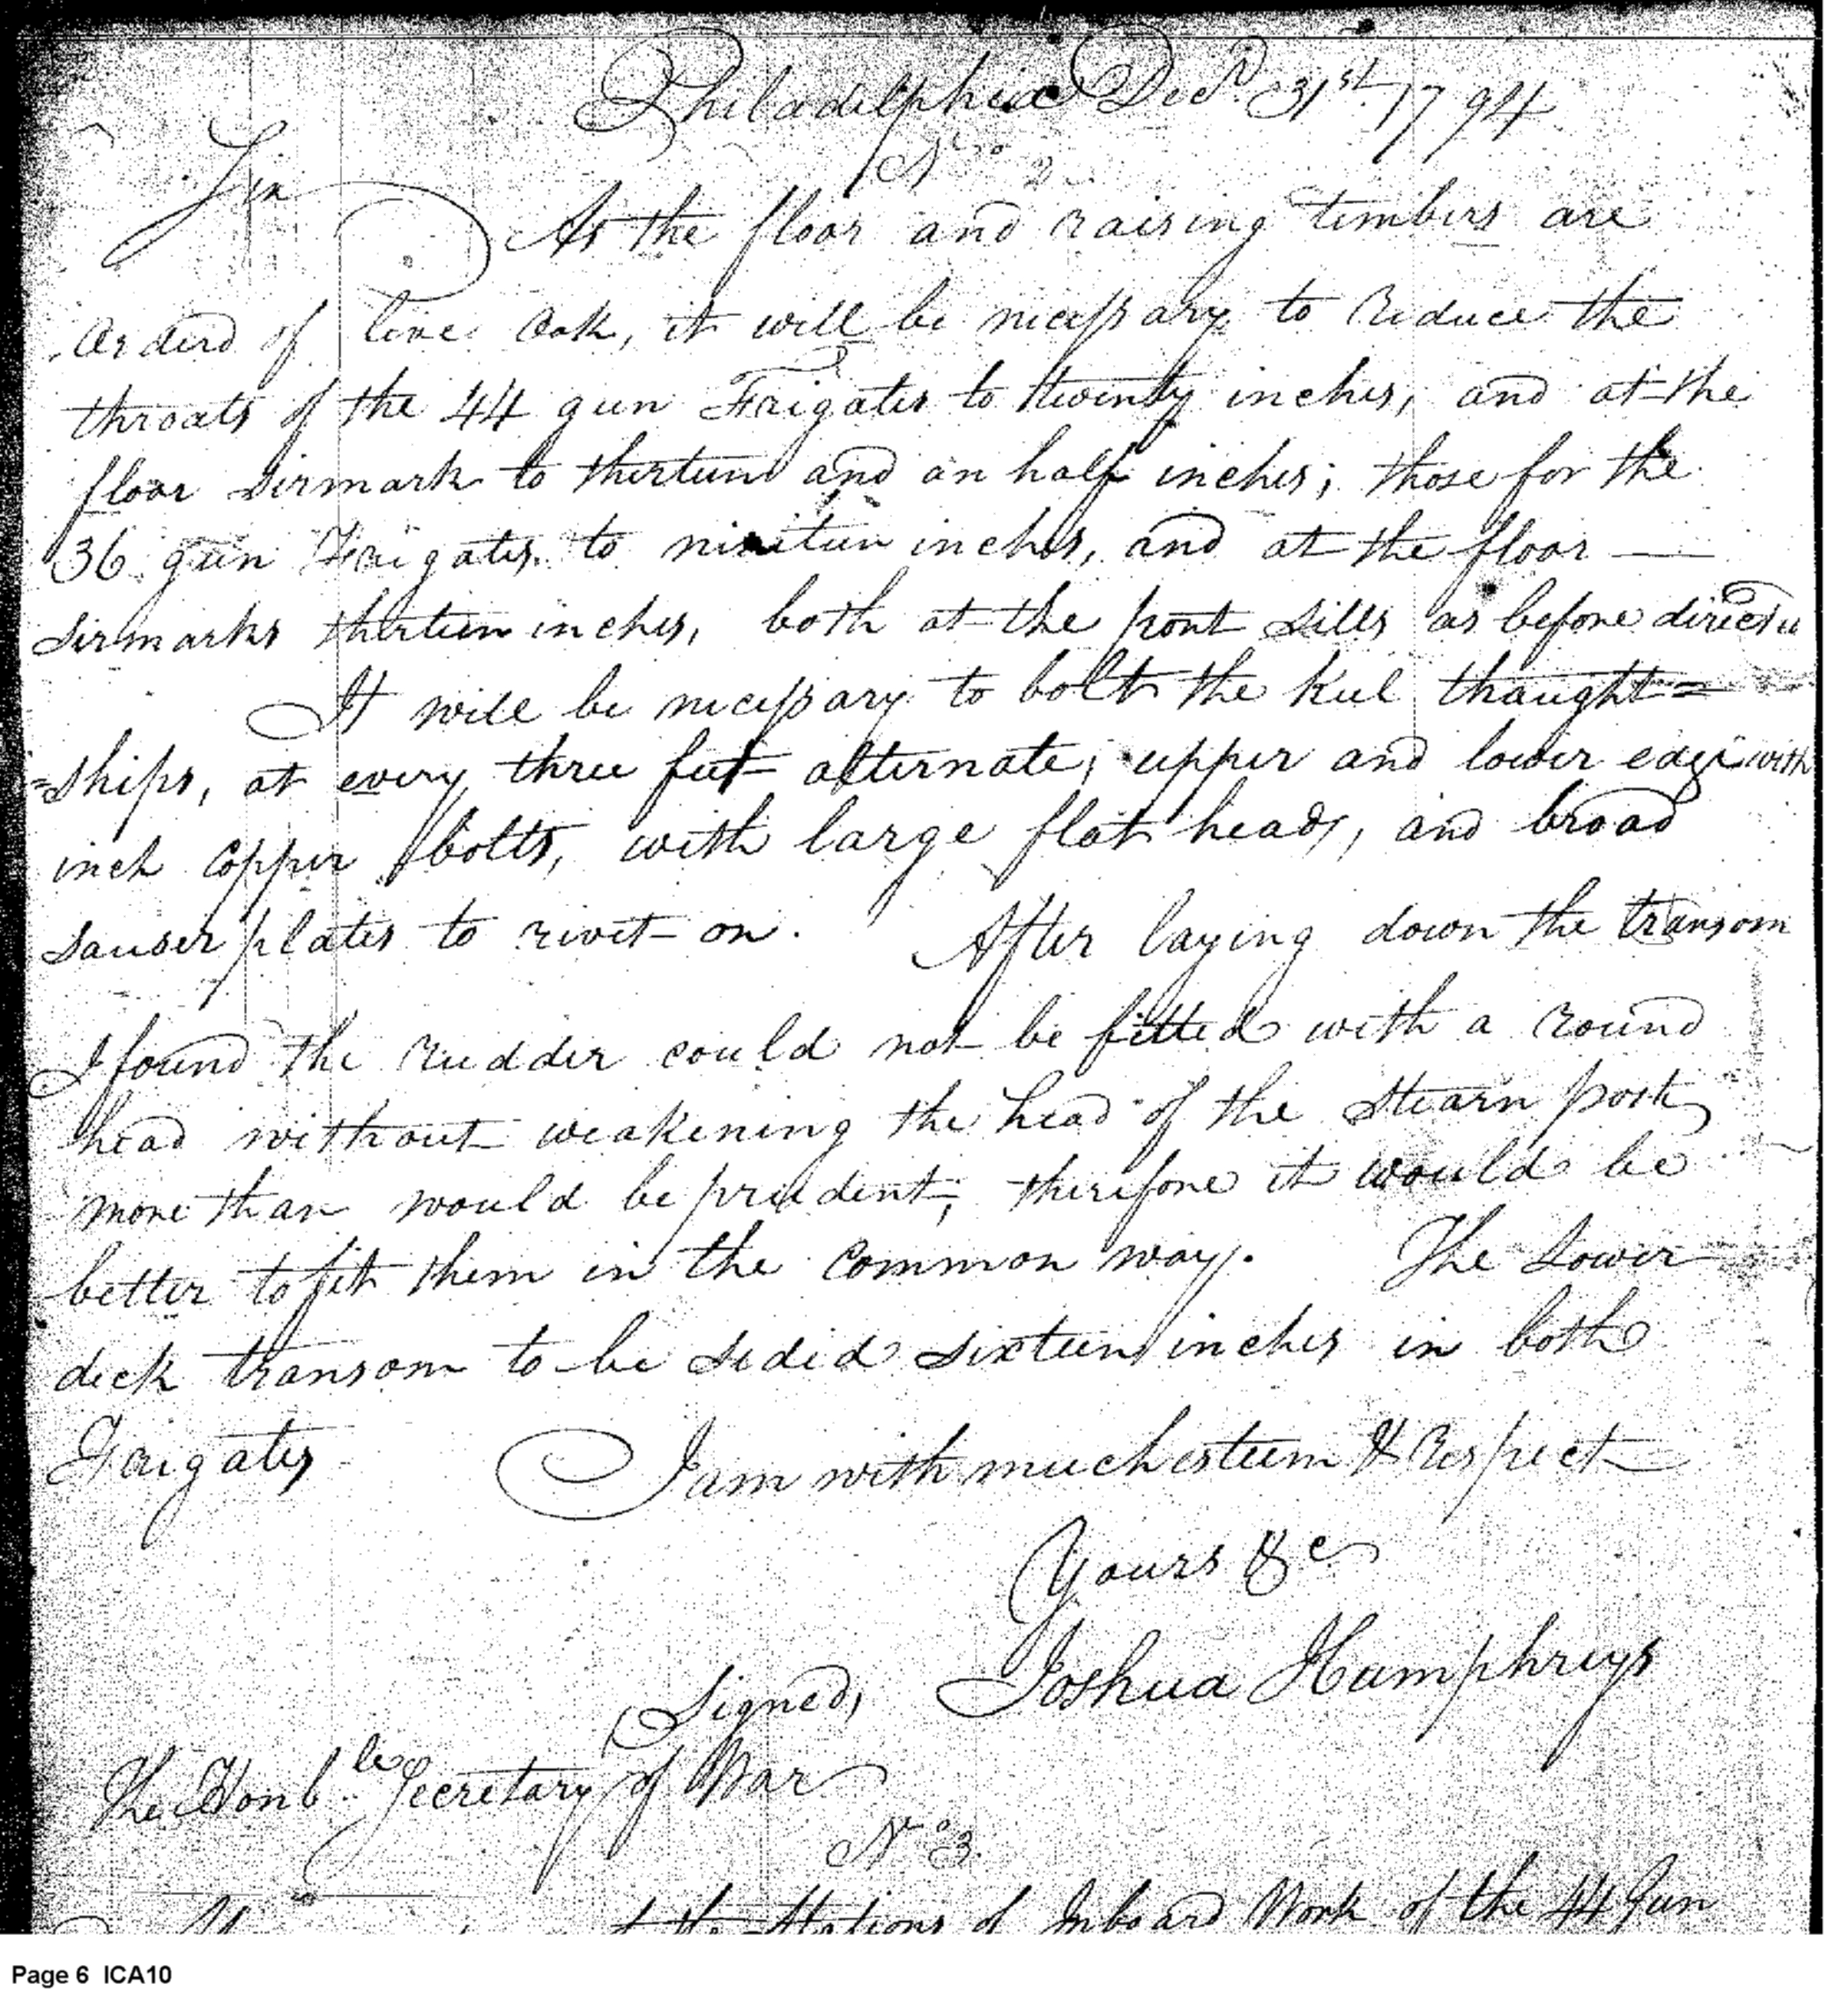 Philadelphia Decr. 31st. 1794
No. 2
Sir
As the floor and raising timbers are
orderd of live Oak, it will be necessary to reduce the
throats of the 44 gun Frigates to twenty inches, and at the
floor sirmark to thirteen and an half inches; those for the
36 gun Frigates to nineteen inches, and at the floor —
sirmarks thirteen inches, both at the port sills as before
It will be necessary to bolt the keel thaught=
=ships, at every three feet alternate, upper and lower edge with
inch Copper bolts, with large flat heads, and broad
sauser plates to rivet on. After laying down the transom
I found the rudder could not be fitted with a round
head without weakening the head of the stearn post
more than would be prudent, therefore it would be
better to fit them in the common way. The Lower
deck transom to be sided sixteen inches in both
Frigates I am with much esteem & Respect
Yours &c
Signed, Joshua Humphreys
The Honble. Secretary of War
No. 3.
of the Stations of Inboard Work of the 44 Gun
Page 6 ICA10